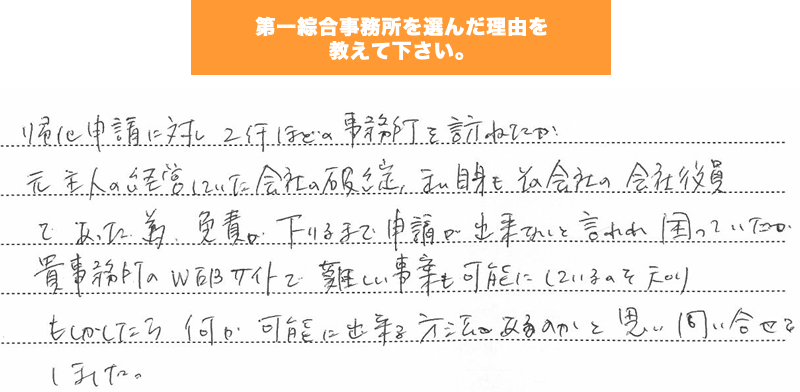 第一綜合事務所を選んだ理由を
教えて下さい。
帰化申請に対し 2件ほどの事務所を訪ねたが
元主人の経営していた会社の破綻、私自身もその会社の会社役員
であった為、免責が下りるまで申請が出来ないと言われ困っていたが
貴事務所のWEBサイトで難しい事案も可能にしているのを知り
もしかしたら何か可能に出来る方法があるのかと思い問い合せを
しました。